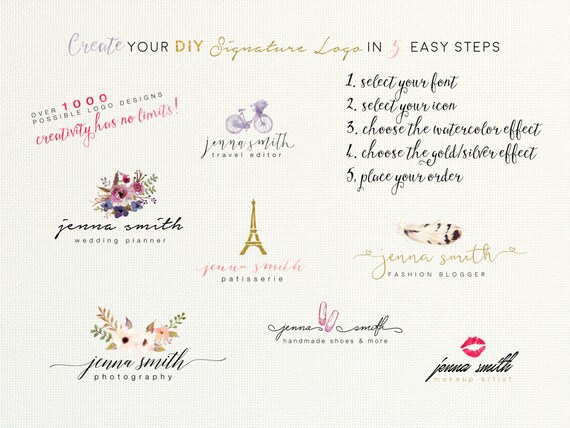 Create YOUR DIY Signature Logo IN 5 EASY STEPS
OVER 1000
POSSIBLE LOGO DESIGNS
creativity has no limits!
jenna smith
travel editor
1. select your font
2. select your icon
3. choose the watercolor effect
4. choose the gold/silver effect
5. place your order
jenna smith
wedding planner
jenna smith
patisserie
jenna smith
FASHION BLOGGER
jenna smith
photography
jenna smith
handmade shoes & more
jenna smith
makeup artist